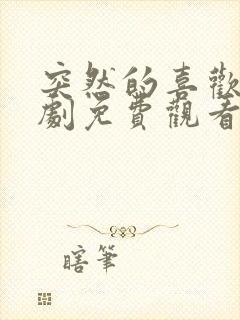 突然的喜歡
劇免費觀看
瞎筆